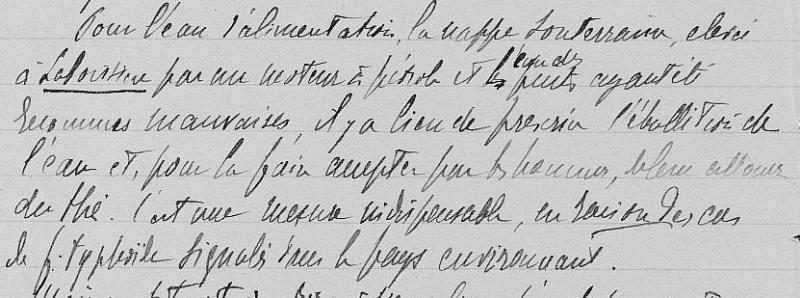 Pour l'eau d'alimentation, la nappe souterraine, élevée
à par un moteur à pétrole et l'eau des puits ayant été
reconnues mauvaises, il y a lieu de prescrire l'ébullition de
l'eau et, pour la faire accepter par les hommes, de leur allouer
du thé. C'est une mesure indispensable, en raison des cas
de f. typhoïde signalés dans le pays environnant.